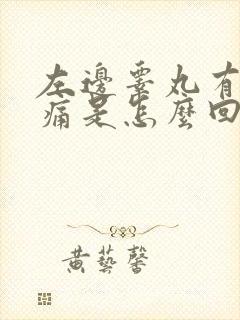 左邊睪丸有
痛是怎麼回
黃藝馨